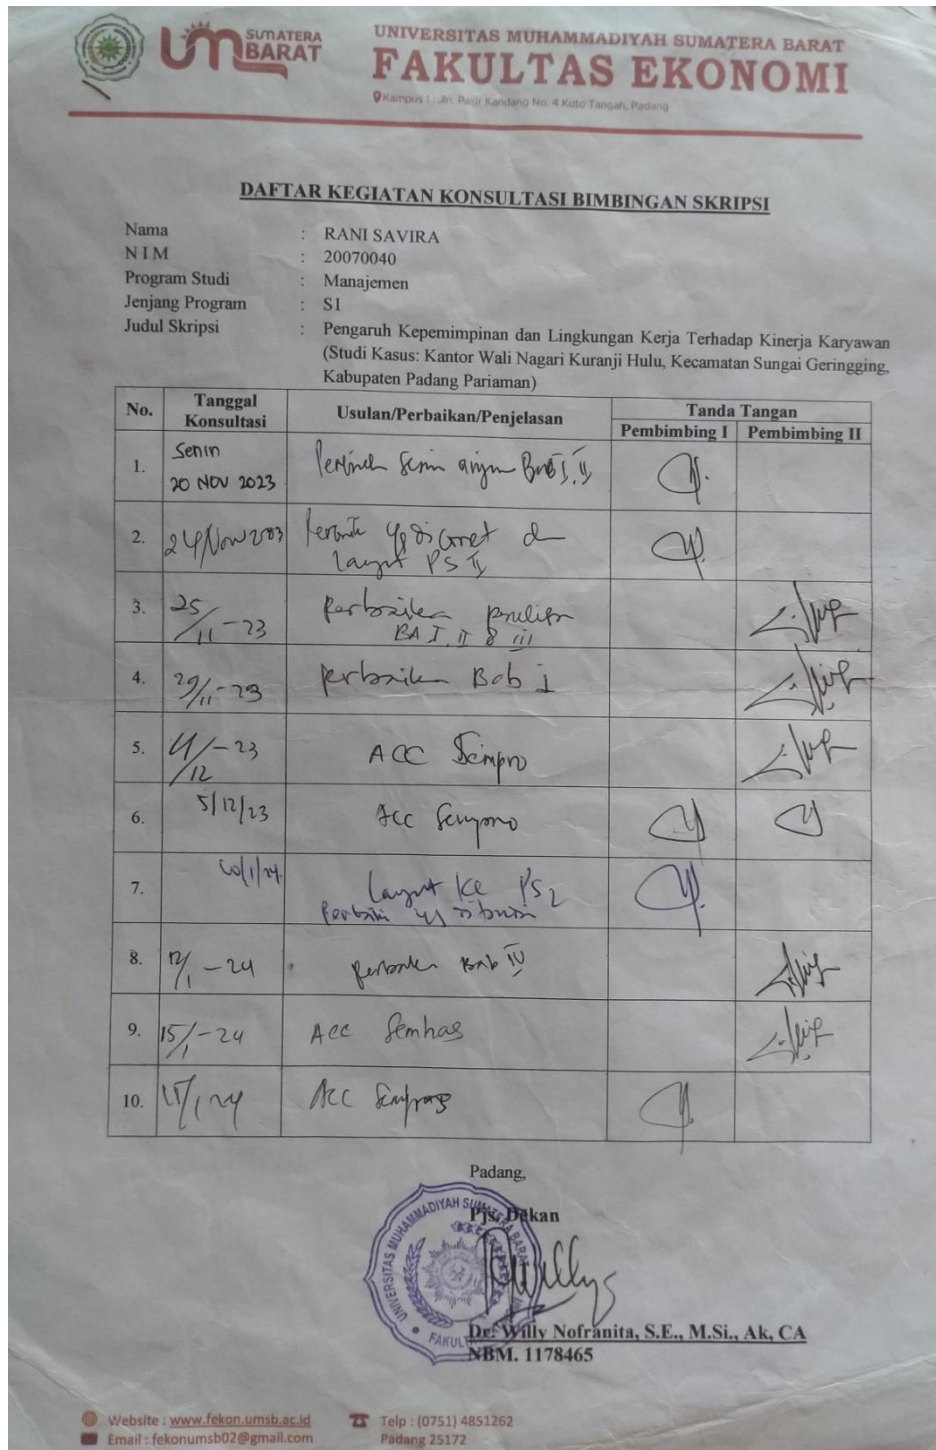 UM SUMATERA BARAT
UNIVERSITAS MUHAMMADIYAH SUMATERA BARAT
FAKULTAS EKONOMI
Kampus 1 : Jln. Pasir Kandang No. 4 Koto Tangah, Padang
DAFTAR KEGIATAN KONSULTASI BIMBINGAN SKRIPSI
Nama : RANI SAVIRA
N I M : 20070040
Program Studi : Manajemen
Jenjang Program : S1
Judul Skripsi : Pengaruh Kepemimpinan dan Lingkungan Kerja Terhadap Kinerja Karyawan
(Studi Kasus: Kantor Wali Nagari Kuranji Hulu, Kecamatan Sungai Geringging,
Kabupaten Padang Pariaman)
No. Tanggal Konsultasi Usulan/Perbaikan/Penjelasan Tanda Tangan
Pembimbing I Pembimbing II
1. Senin
20 NOV 2023
2.
3. 25/11-23
BAB I, II & III
4. 29/11-23 Perbaikan Bab I
5. 4/12-23 ACC Sempro
6. 5/12/23 Acc Sempro
7. ke PS2
8. 12/1-24 Perbaikan Bab IV
9. 15/1-24 Acc Semhas
10. Acc
Padang,
Pjs. Dekan
UNIVERSITAS MUHAMMADIYAH SUMATERA BARAT
Dr. Willy Nofranita, S.E., M.Si., Ak, CA
NBM. 1178465
Website : www.fekon.umsb.ac.id Telp : (0751) 4851262
Email : fekonumsb02@gmail.com Padang 25172